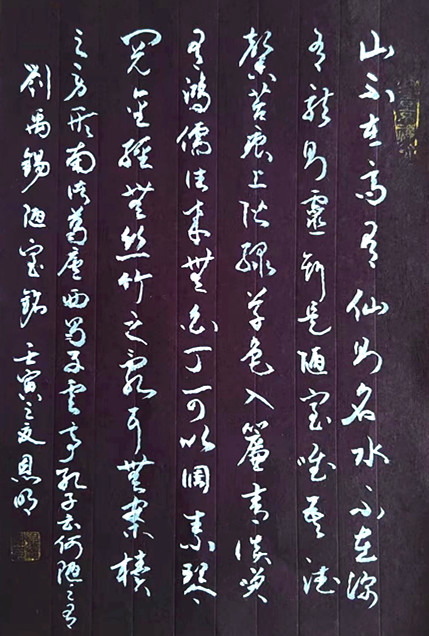 山不在高有仙則名水不在深
有龍則靈斯是陋室唯吾德
馨苔痕上階綠草色入簾青談笑
有鴻儒往來無白丁可以調素琴
閱金經無絲竹之亂耳無案牘
之勞形南陽葛廬西蜀子雲亭孔子云何陋之有
劉禹錫陋室銘 壬寅之夏恩明